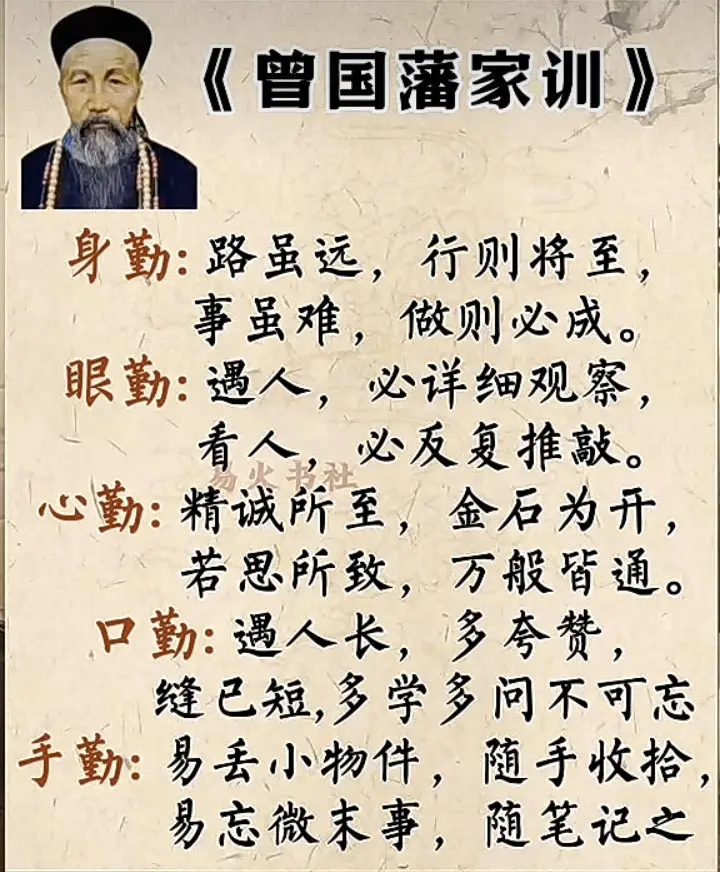 《曾国藩家训》
身勤:路虽远，行则将至，
事虽难，做则必成。
眼勤:遇人，必详细观察，
看人，必反复推敲。
易火书社
心勤:精诚所至，金石为开，
若思所致，万般皆通。
口勤:遇人长，多夸赞，
缝已短,多学多问不可忘
手勤:易丢小物件，随手收拾，
易忘微末事，随笔记之